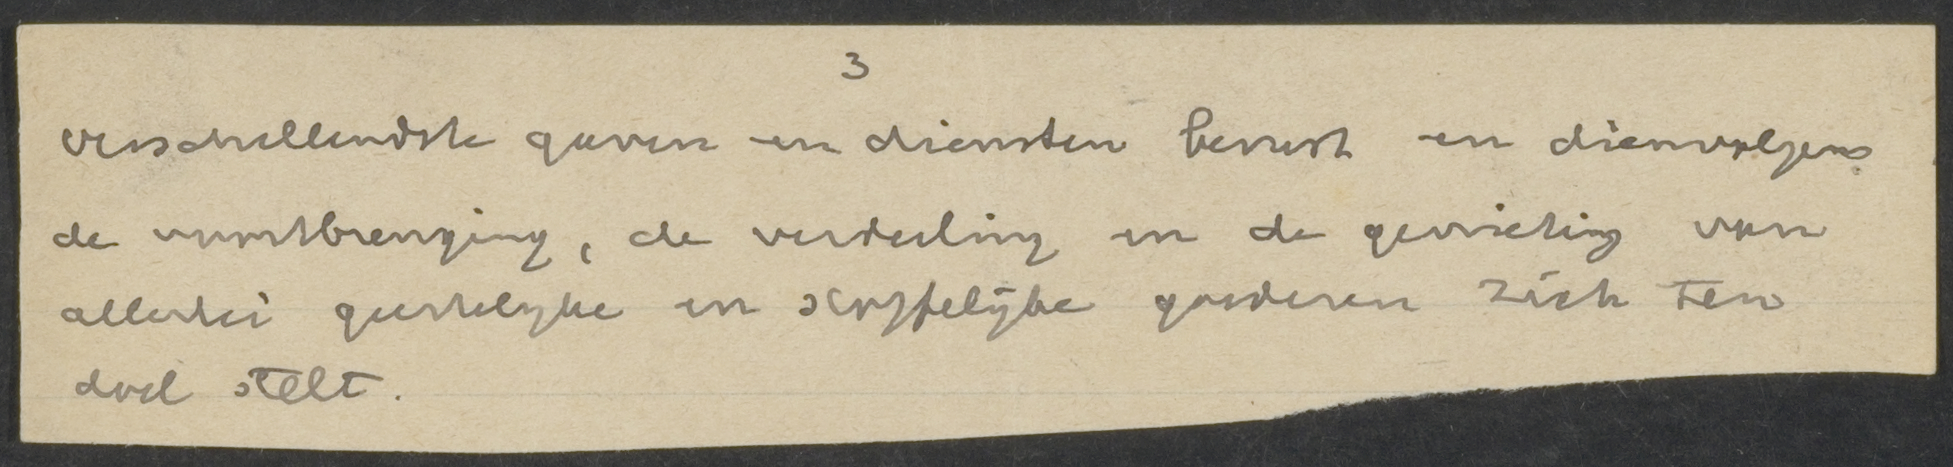 3
verschillendste gaven en diensten berust en dienvolgens
de voortbrenging, de verdeeling en de  van
allerlei geestelijke en stoffelijke goederen zich ten
doel stelt.